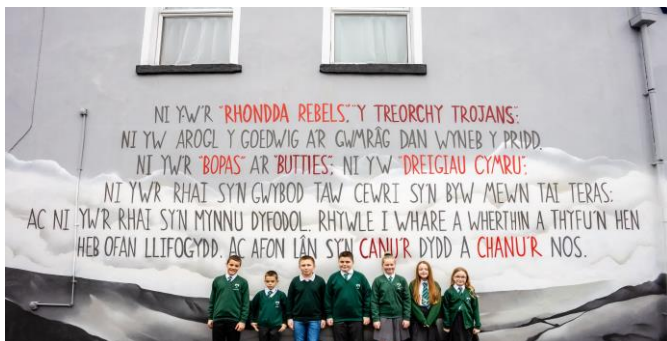 NI YW'R "RHONDDA REBELS", "Y TREORCHY TROJANS":
NI YW AROGL Y GOEDWIG AR GWMRÂG DAN WYNEB Y PRIDD.
NI YW'R "BOPAS" A'R "BUTTIES", NI YW "DREIGIAU CYMRU":
NI YW'R RHAI SY'N GWYBOD TAW CEWRI SY'N BYW MEWN TAI TERAS:
AC NI YW'R RHAI SY'N MYNNU DYFODOL. RHYWLE I WHARE A WHERTHIN A THYFU'N HEN
HEB OFAN LLIFOGYDD. AC AFON LÂN SY'N CANU'R DYDD A CHANU'R NOS.